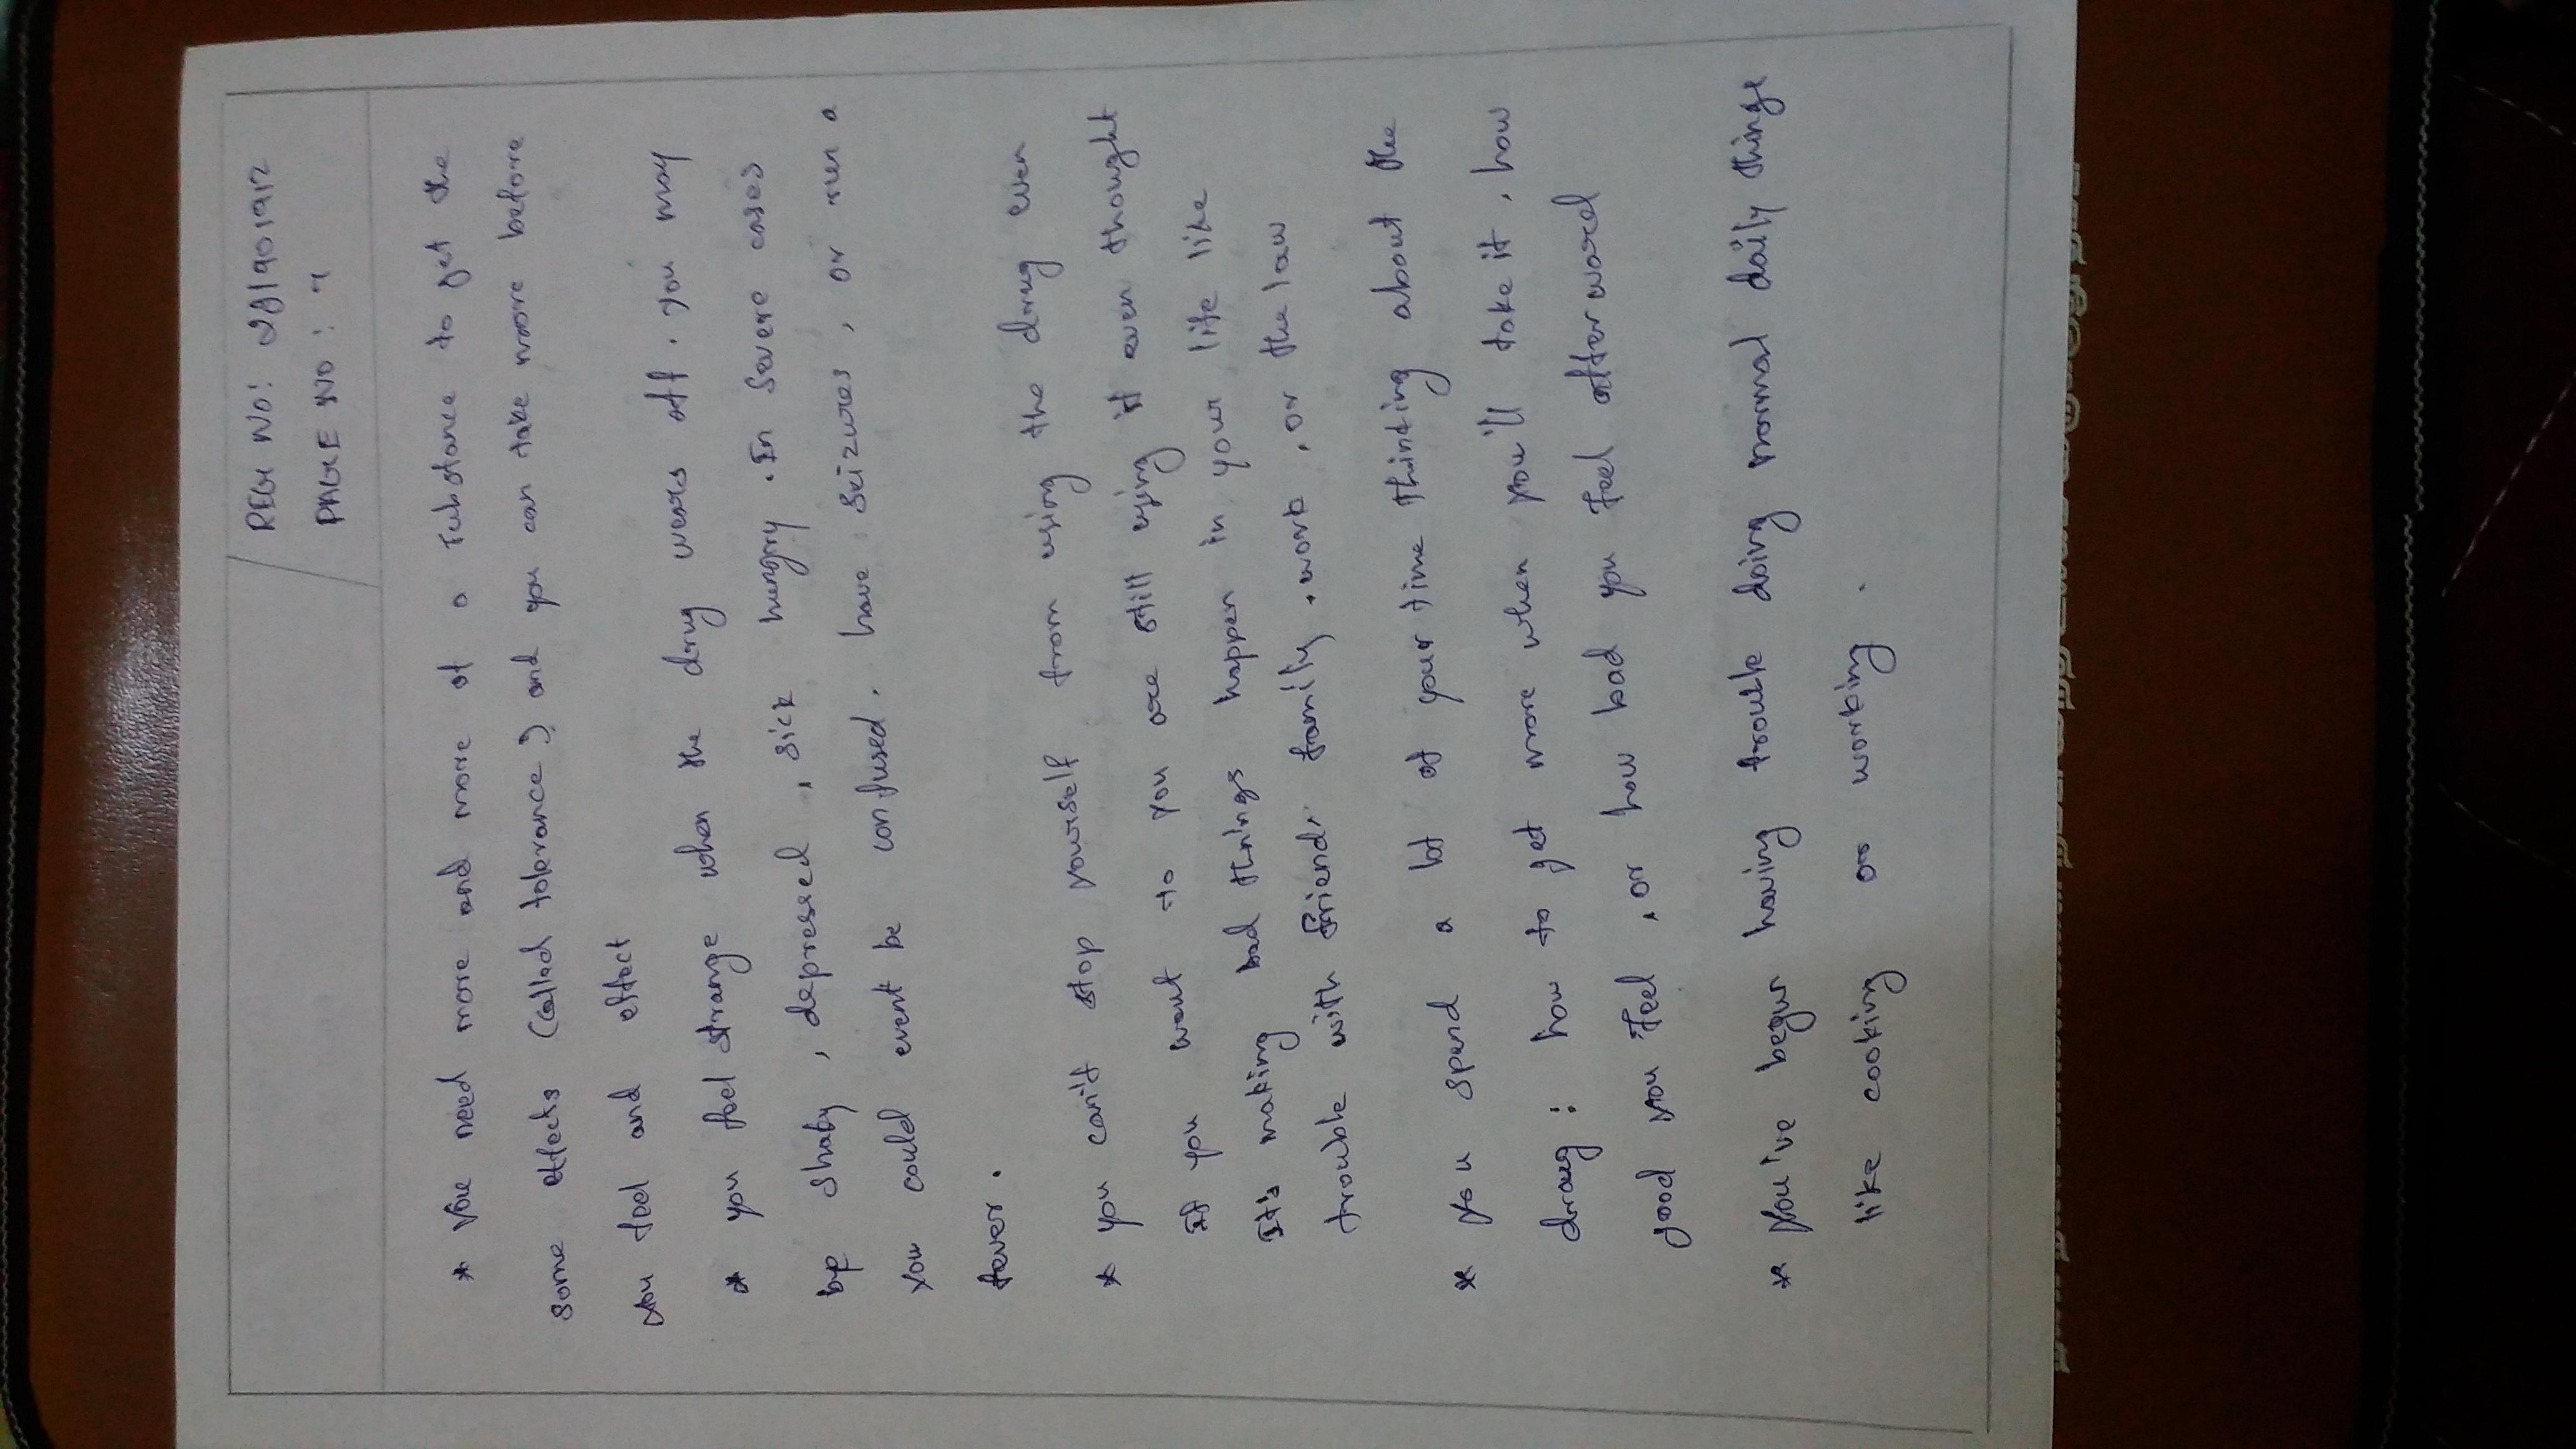 REG NO: 281901912
PAGE NO: 7
* You need more and more of a substance to get the
some effects (called tolerance) and you can take moore before
you feel and effect
* you feel strange when the drug wears off. you may
be shaky, depressed, sick hungry. In severe cases
you could event be confused. have seizures, or run a
fever.
* you can't stop yourself from using the drug even
If you want to you are still using it even thought
It's making bad things happen in your life like
trouble with friends family, work, or the law
* you spend a lot of your time thinking about the
draug: how to get more when you'll take it, how
good you feel, or how bad you feel afterward
* You've begun having trouble doing normal daily things
like cooking or working.